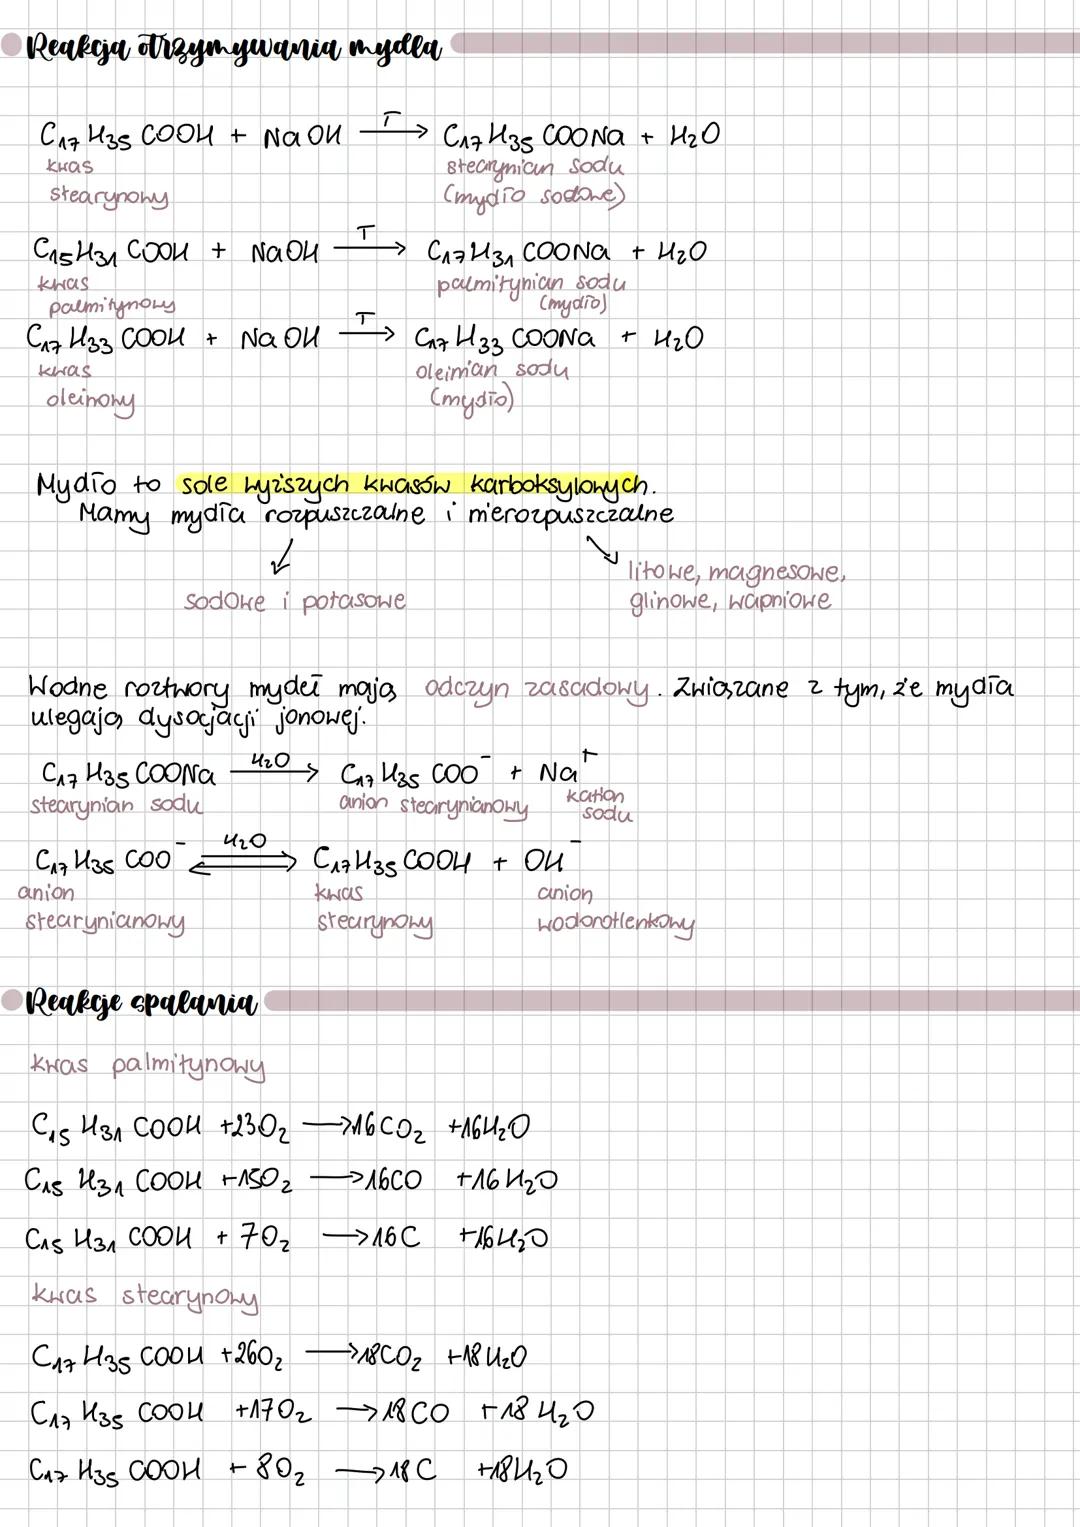 Reakcja otrzymywania mydła
C₁₇H₃₅COOH + NaOH —T→ C₁₇H₃₅COONa + H₂O
kwas stearynian sodu
stearynowy (mydło sodowe)
C₁₅H₃₁COOH + NaOH —T→ C₁₇H₃₁COONa + H₂O
kwas palmitynian sodu
palmitynowy (mydło)
C₁₇H₃₃COOH + NaOH —T→ C₁₇H₃₃COONa + H₂O
kwas oleinian sodu
oleinowy (mydło)
Mydło to sole wyższych kwasów karboksylowych.
Mamy mydła rozpuszczalne i nierozpuszczalne
litowe, magnesowe,
sodowe i potasowe glinowe, wapniowe
Wodne roztwory mydeł mają odczyn zasadowy. Związane z tym, że mydła
ulegają dysocjacji jonowej.
C₁₇H₃₅COONa —H₂O→ C₁₇H₃₅COO⁻ + Na⁺
stearynian sodu anion stearynianowy kation
sodu
C₁₇H₃₅COO⁻ ⇌H₂O C₁₇H₃₅COOH + OH⁻
anion kwas anion
stearynianowy stearynowy wodorotlenkowy
Reakcje spalania
kwas palmitynowy
C₁₅H₃₁COOH +23O₂ → 16CO₂ +16H₂O
C₁₅H₃₁COOH +15O₂ → 16CO +16H₂O
C₁₅H₃₁COOH + 7O₂ → 16C +16H₂O
kwas stearynowy
C₁₇H₃₅COOH +26O₂ → 18CO₂ +18H₂O
C₁₇H₃₅COOH +17O₂ → 18CO +18H₂O
C₁₇H₃₅COOH + 8O₂ → 18C +18H₂O